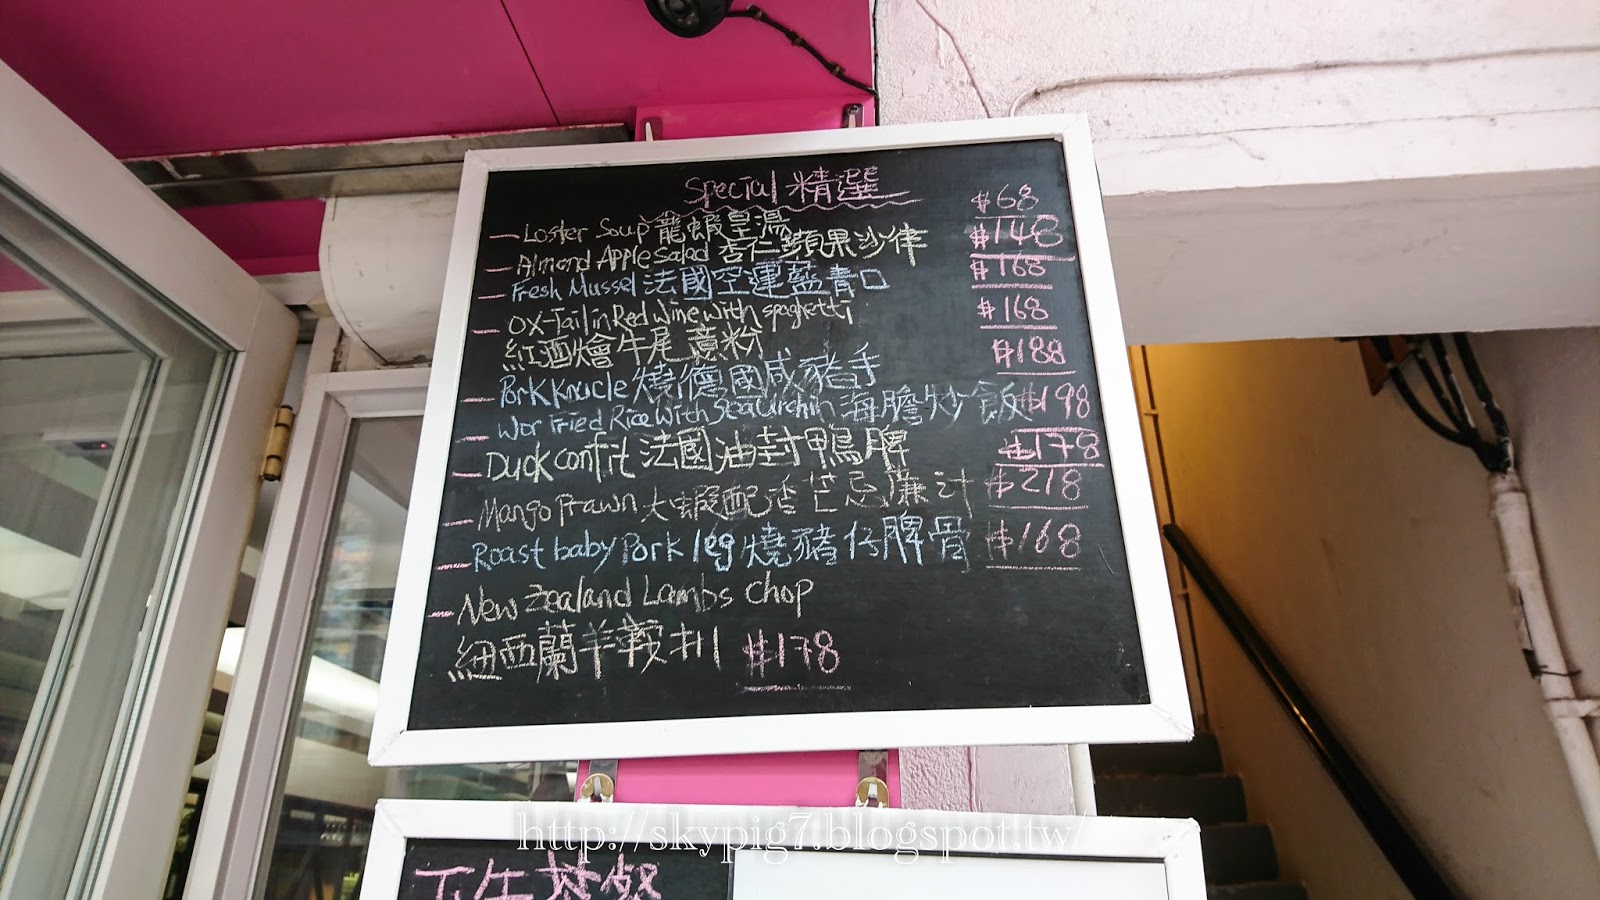 Special 精選
Loster Soup 龍蝦皇湯 $68
Almond Apple Salad 杏仁蘋果沙律 $148
Fresh Mussel 法國空運藍青口 $168
OX-Tail in Red Wine With spaghetti $168
紅酒燴牛尾意粉
Pork Knucle 燒德國咸豬手 $188
Wor Fried Rice With Sea Urchin 海膽炒飯 $198
Duck confit 法國油封鴨脾 $178
Mango Prawn 大蝦配香芒忌廉汁 $218
Roast baby Pork leg 燒豬仔脾骨 $168
New Zealand Lambs Chop
紐西蘭羊鞍扒 $178
http://skypig7.blogspot.tw/
下午茶餐